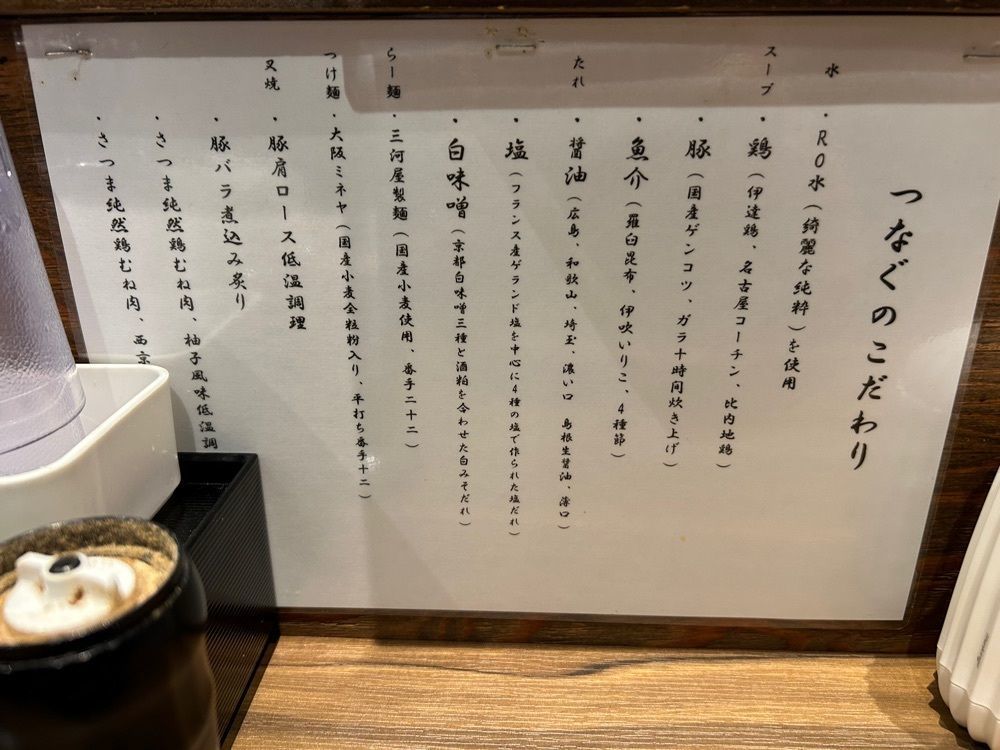 つなぐのこだわり
水
・RO水（綺麗な純粋）を使用
スープ
・鶏（伊達鶏、名古屋コーチン、比内地鶏）
・豚（国産ゲンコツ、ガラ十時間炊き上げ）
・魚介（羅臼昆布、伊吹いりこ、4種節）
たれ
・醤油（広島、和歌山、埼玉、濃い口　島根生醤油、薄口）
・塩（フランス産ゲランド塩を中心に4種の塩で作られた塩だれ）
・白味噌（京都白味噌三種と酒粕を合わせた白みそだれ）
らー麺
・三河屋製麺（国産小麦使用、番手二十二）
つけ麺
・大阪ミネヤ（国産小麦全粒粉入り、平打ち番手十二）
叉焼
・豚肩ロース低温調理
・豚バラ煮込み炙り
・さつま純然鶏むね肉、柚子風味低温調
・さつま純然鶏むね肉、西京